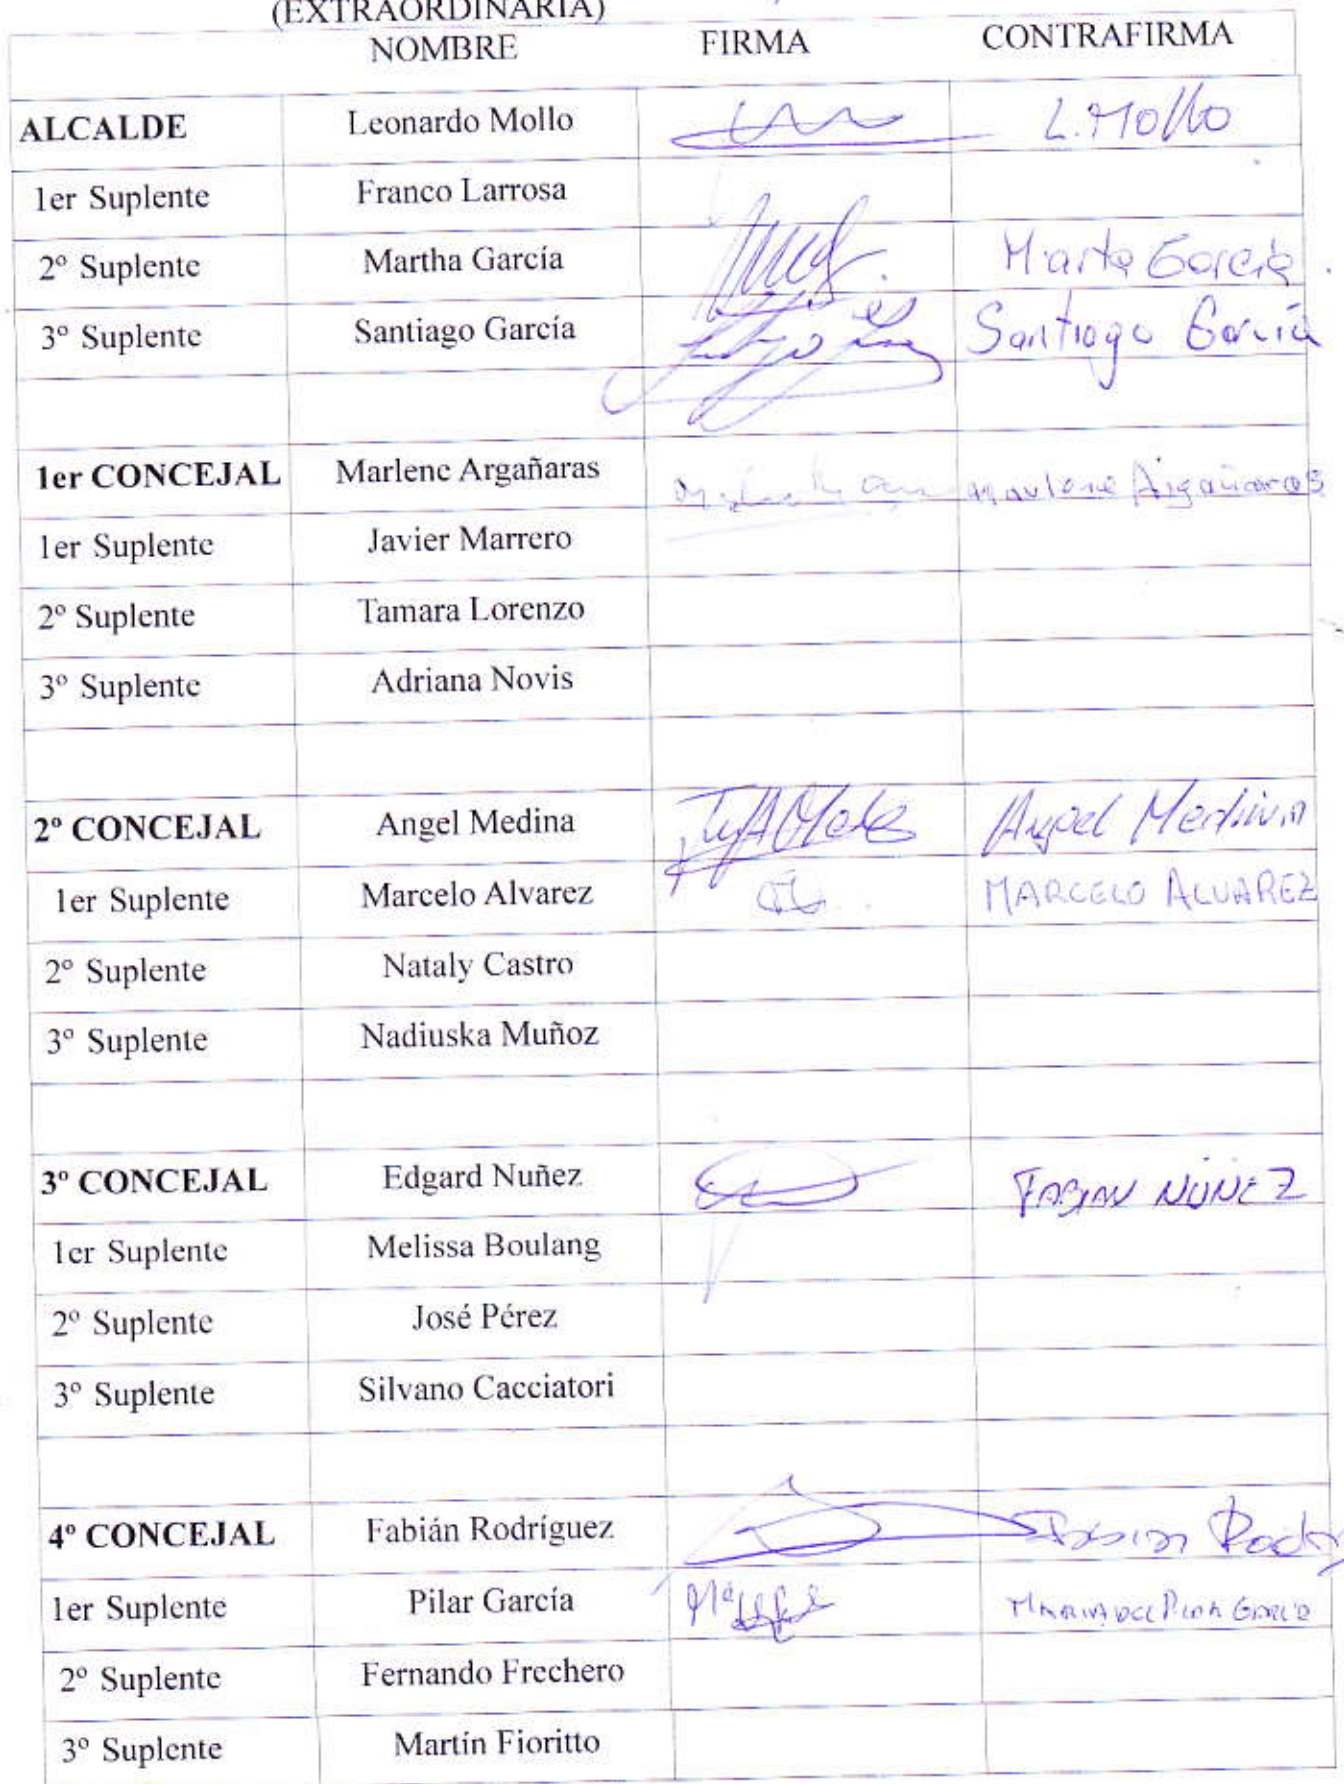 (EXTRAORDINARIA)
NOMBRE FIRMA CONTRAFIRMA
ALCALDE Leonardo Mollo L. Mollo
1er Suplente Franco Larrosa
2º Suplente Martha García Marta García
3º Suplente Santiago García Santiago García
1er CONCEJAL Marlene Argañaras Marlene Argañaras
1er Suplente Javier Marrero
2º Suplente Tamara Lorenzo
3º Suplente Adriana Novis
2º CONCEJAL Angel Medina Angel Medina
1er Suplente Marcelo Alvarez MARCELO ALVAREZ
2º Suplente Nataly Castro
3º Suplente Nadiuska Muñoz
3º CONCEJAL Edgard Nuñez FABIAN NUÑEZ
1er Suplente Melissa Boulang
2º Suplente José Pérez
3º Suplente Silvano Cacciatori
4º CONCEJAL Fabián Rodríguez Fabian Rodr
1er Suplente Pilar García Mª MARIA DEL PILAR GARCIA
2º Suplente Fernando Frechero
3º Suplente Martín Fioritto